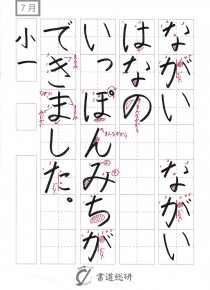 7月
ながい ながい
はなの
いっぽんみちが
できました。
小一
書道総研